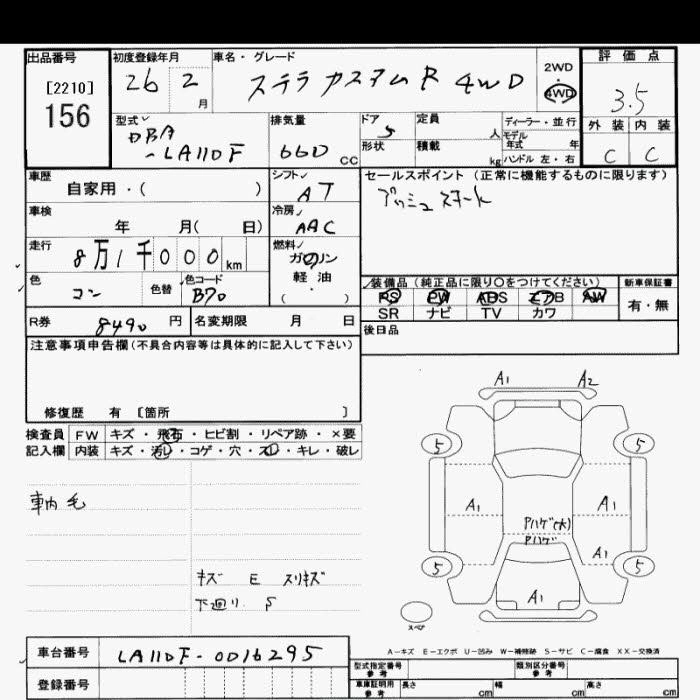 出品番号
[2210]
156
初度登録年月
26 2 月
車名・グレード
ステラ カスタム R 4WD
2WD
4WD
評価点
3.5
外装 内装
C C
型式
DBA
-LA110F
排気量
660 cc
ドア
5
形状
定員
人
積載
kg
ディーラー・並行
モデル
年式 年
ハンドル 左・右
車歴
自家用・( )
シフト
AT
車検
年 月( 日)
冷房
AAC
走行
8万1千000km
燃料
ガソリン
軽・油
( )
色
コン
色替
色コード
B70
R券
8490 円
名変期限 月 日
セールスポイント(正常に機能するものに限ります)
プッシュスタート
装備品(純正品に限り〇をつけてください)
PS PW ABS エアB AW
SR ナビ TV カワ
新車保証書
有・無
後日品
注意事項申告欄(不具合内容等は具体的に記入して下さい)
修復歴 有 [箇所 ]
検査員
記入欄
FW キズ・飛石・ヒビ割・リペア跡・×要
内装 キズ・汚レ・コゲ・穴・スレ・キレ・破レ
車内 毛
キズ E スリキズ
下廻り S
A1 A2
5 5
A1 A1
Pハゲ(大)
Pハゲ
A1
5 5
A1
スペア
A-キズ E-エクボ U-凹み W-補修跡 S-サビ C-腐食 XX-交換済
車台番号
LA110F-0016295
登録番号
型式指定番号
参考
類別区分番号
参考
車庫証明用
参考
長さ cm 幅 cm 高さ cm